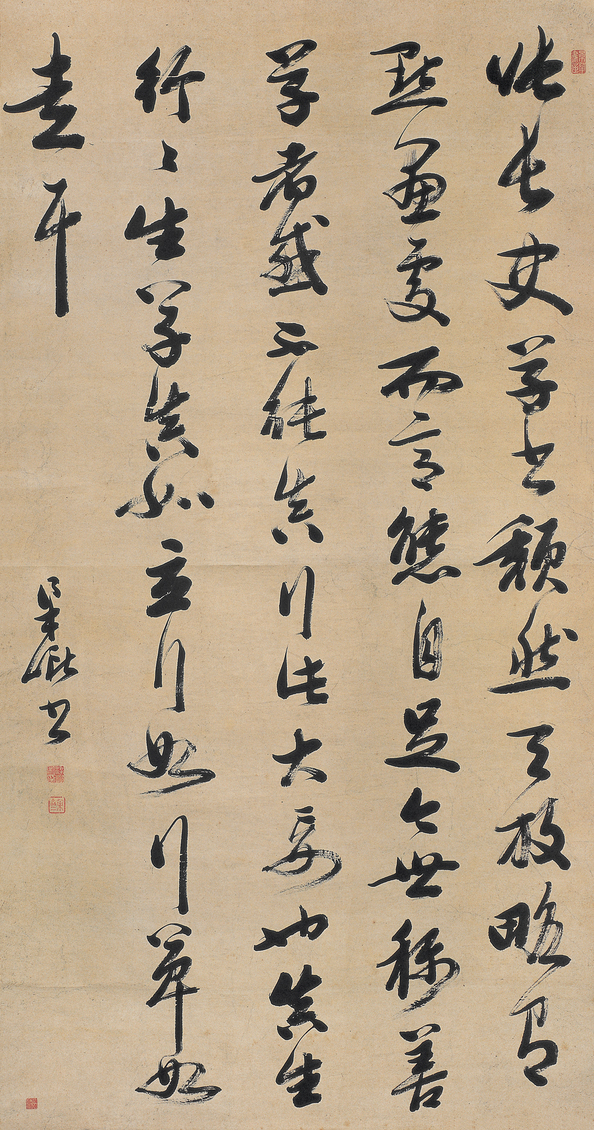 張長史草書頹然天放略有
點畫處而意態自足今世稱善
草者或不能真行此大妄也真生
行〻生草真如立行如行草如
走耳
梁巘書